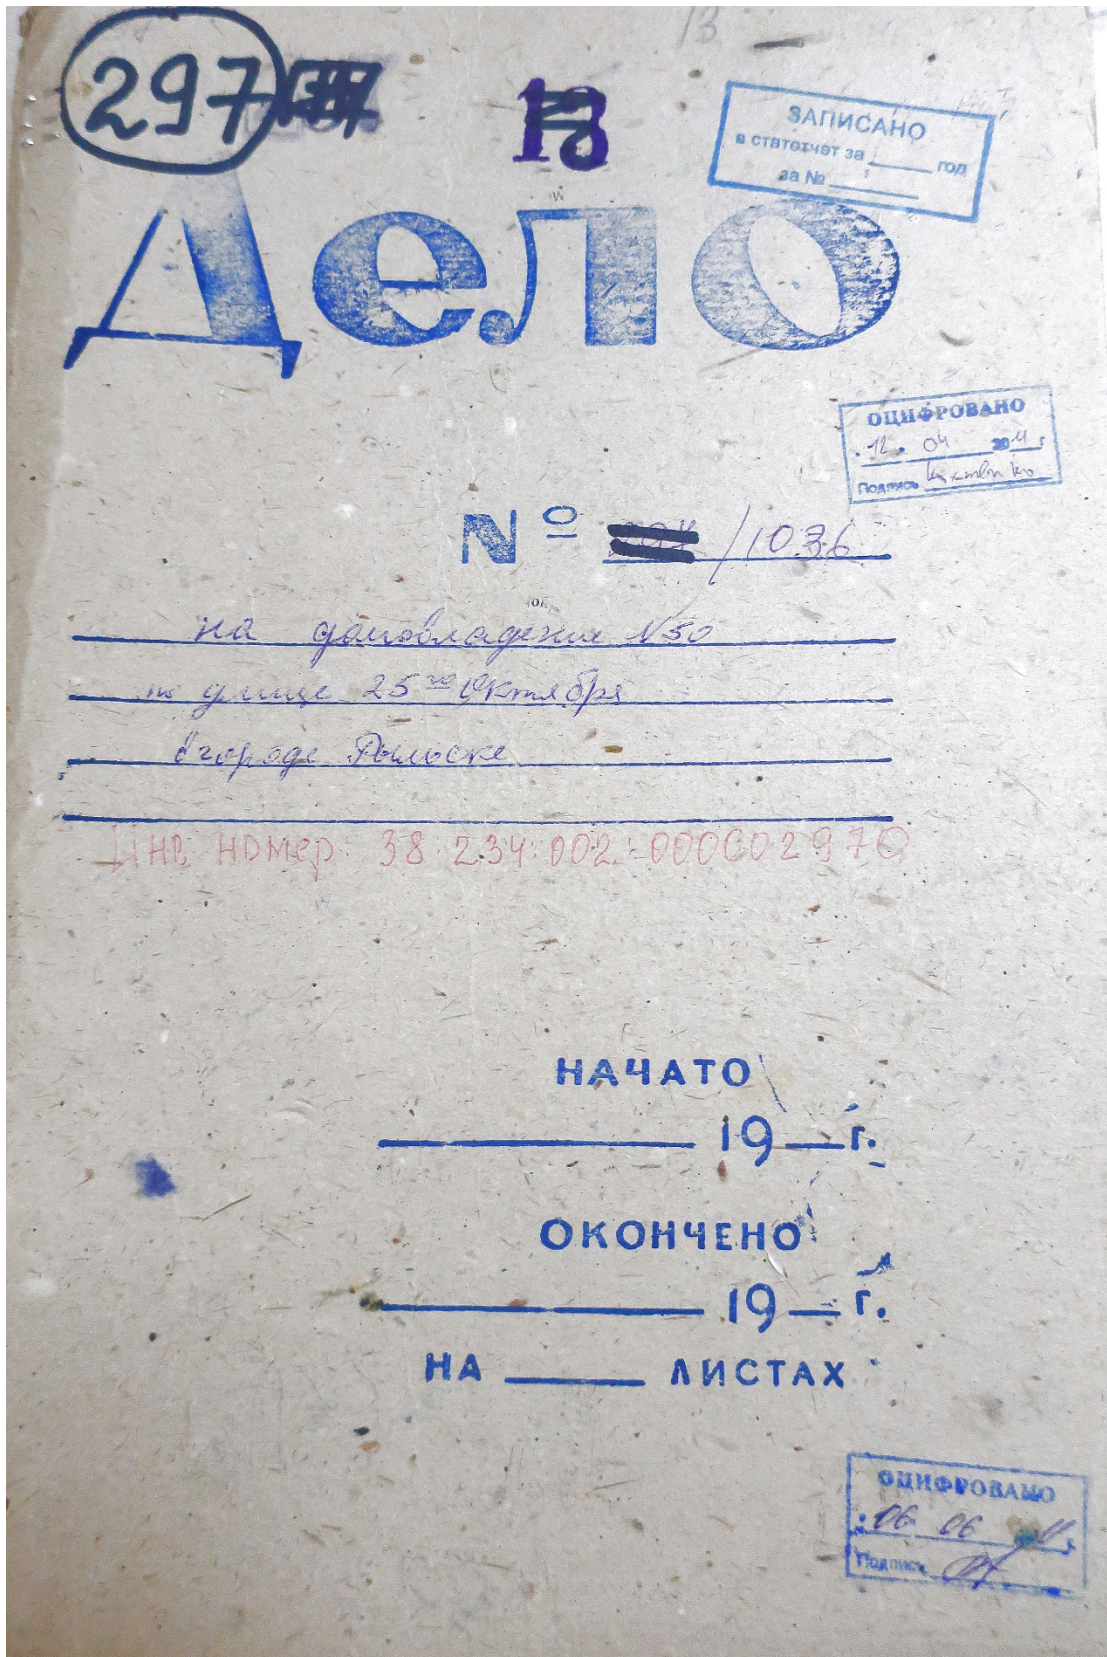 13
297
13
ЗАПИСАНО
в статотчет за ______ год
за № ______
Дело
ОЦИФРОВАНО
12. 04 2011 г.
Подпись
№ /1036
на домовладение N50
по улице 25го Октября
в городе Рыльске
Инв номер. 38:234:002:000002970
НАЧАТО
______ 19 __ г.
ОКОНЧЕНО
______ 19 __ г.
НА ______ ЛИСТАХ
ОЦИФРОВАНО
06 06 11 г.
Подпись